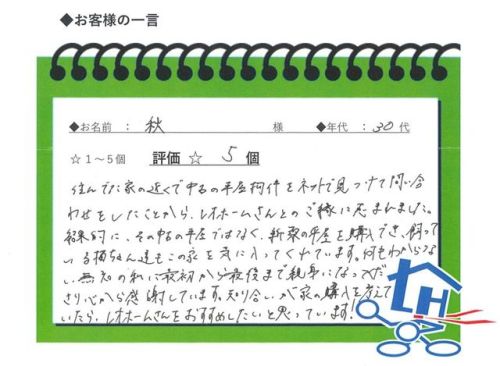 ◆お客様の一言
◆お名前 : 秋 様 ◆年代 : 30 代
☆1～5個 評価 ☆ 5 個
住んでた家の近くで中古の平屋物件をネットで見つけて問い合
わせをしたことから、レオホームさんとのご縁に恵まれました。
結果的に、その中古の平屋ではなく、新築の平屋を購入でき、飼って
いる猫ちゃん達もこの家を気に入ってくれています。何もわからな
い無知の私に最初から最後まで親身になってくだ
さり心から感謝しています。知り合いが家の購入を考えて
いたら、レオホームさんをおすすめしたいと思っています!
LH